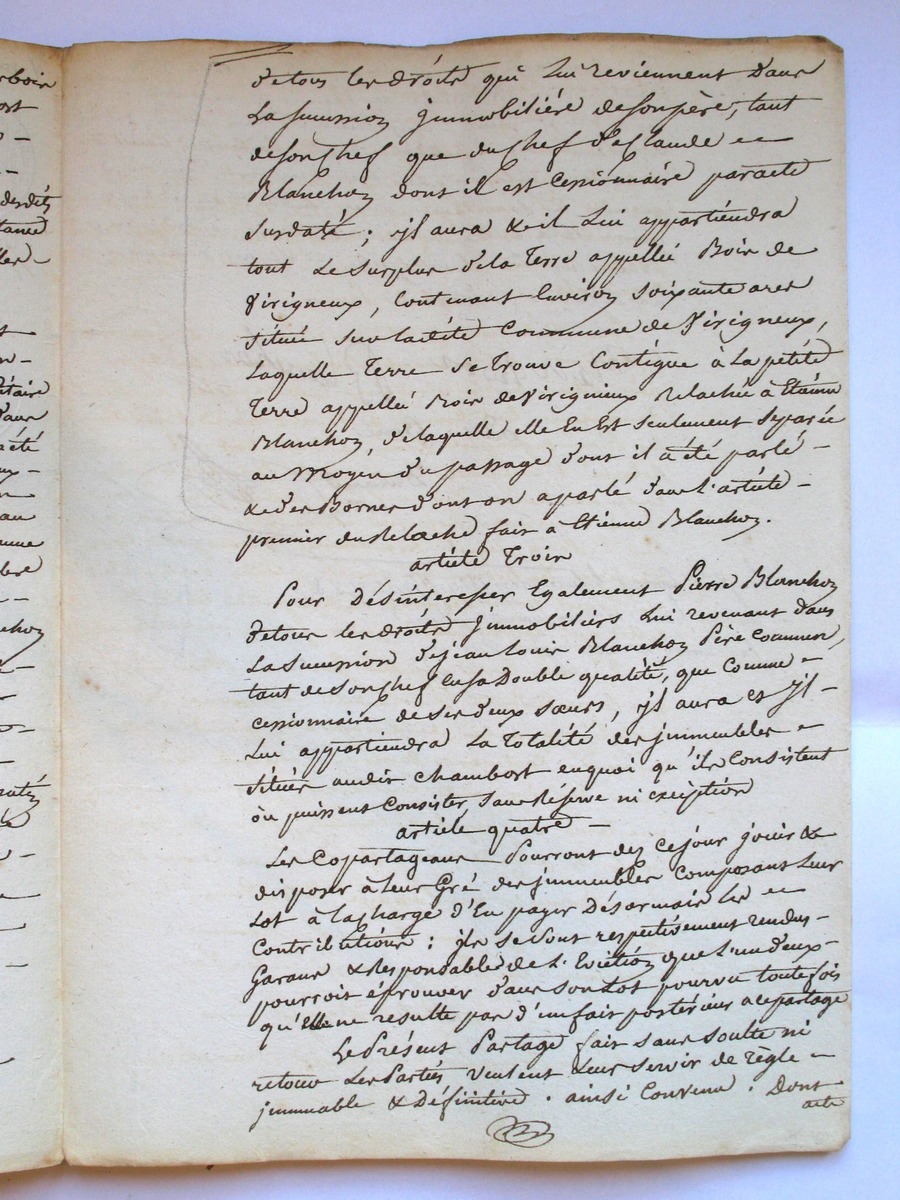 de tous les droits qui lui reviennent dans
La succession jmmobiliére de son père, tant
de son chef que du chef de Claude
Blanchon dont il est Cessionnaire par acte
susdaté ; jl aura & il Lui appartiendra
tout Le surplus de la Terre appellée Bois de
Virigneux, Contenant Environ soixante ares
située sur ladite Commune de Virigneux,
Laquelle Terre se Trouve Contigue à La petite
Terre appellée Bois de Virignieux Relachée à Etienne
Blanchon, de laquelle elle En Est seulement separée
au moyen du passage dont il a été parlé -
& des Bornes dont on a parlé dans l'article -
premier du Relache fait à Etienne Blanchon.
article Trois
Pour Désinteresser Egalement Pierre Blanchon
de tous les droits Jmmobiliers Lui revenant dans
La succession de jean Louis Blanchon Père commun,
tant de son chef en sa Double qualité, que Comme -
cessionnaire de ses deux sœurs, jl aura et jl -
Lui appartiendra La Totalité des jmmeubles -
situés audit Chambort en quoi qu'ils Consistent
ou puissent Consister, sans Réserve ni exception
article quatre -
Les Copartageans Pourront des ce jour jouir &
disposer à Leur Gré des jmmeubles Composant Leur
Lot à la charge d'En payer Désormais les
Contributions : jls se sont respectivement rendus -
Garans & Responsables de L'Eviction que l'un d'eux -
pourroit éprouver dans son Lot pourvu toutefois
qu'Elle ne resulte pas d'un fait postérieur a ce partage
Le Présent Partage fait sans soulte ni
retour Les Parties veulent Leur servir de règle -
jmmuable & Définitive . ainsi Convenu . Dont
acte